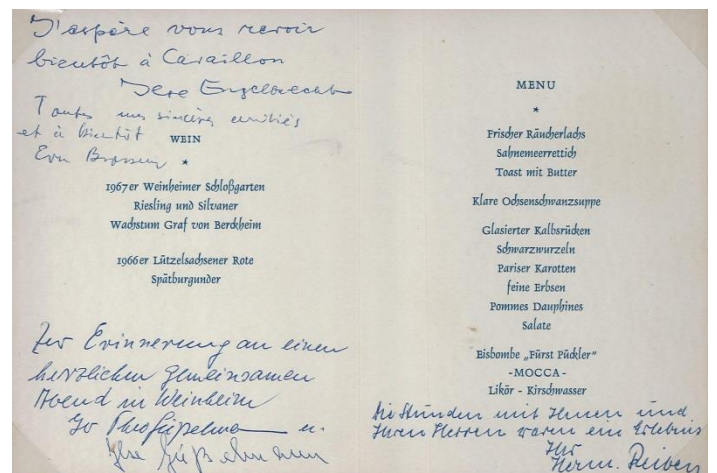 J'espère vous revoir
bientôt à Cavaillon
Ilse Engelbrecht
Toutes mes sincères amitiés
et à bientôt
Eva
WEIN
*
1967er Weinheimer Schloßgarten
Riesling und Silvaner
Wachstum Graf von Berckheim
1966er Lützelsachsener Rote
Spätburgunder
Zur Erinnerung an einen
herzlichen gemeinsamen
Abend in Weinheim
Ihr Theo u.
Ilse
MENU
*
Frischer Räucherlachs
Sahnemeerrettich
Toast mit Butter
Klare Ochsenschwanzsuppe
Glasierter Kalbsrücken
Schwarzwurzeln
Pariser Karotten
feine Erbsen
Pommes Dauphines
Salate
Eisbombe „Fürst Pückler"
-MOCCA-
Likör - Kirschwasser
Die Stunden mit Ihnen und
Ihren Herren waren ein Erlebnis
Ihr
Herm.